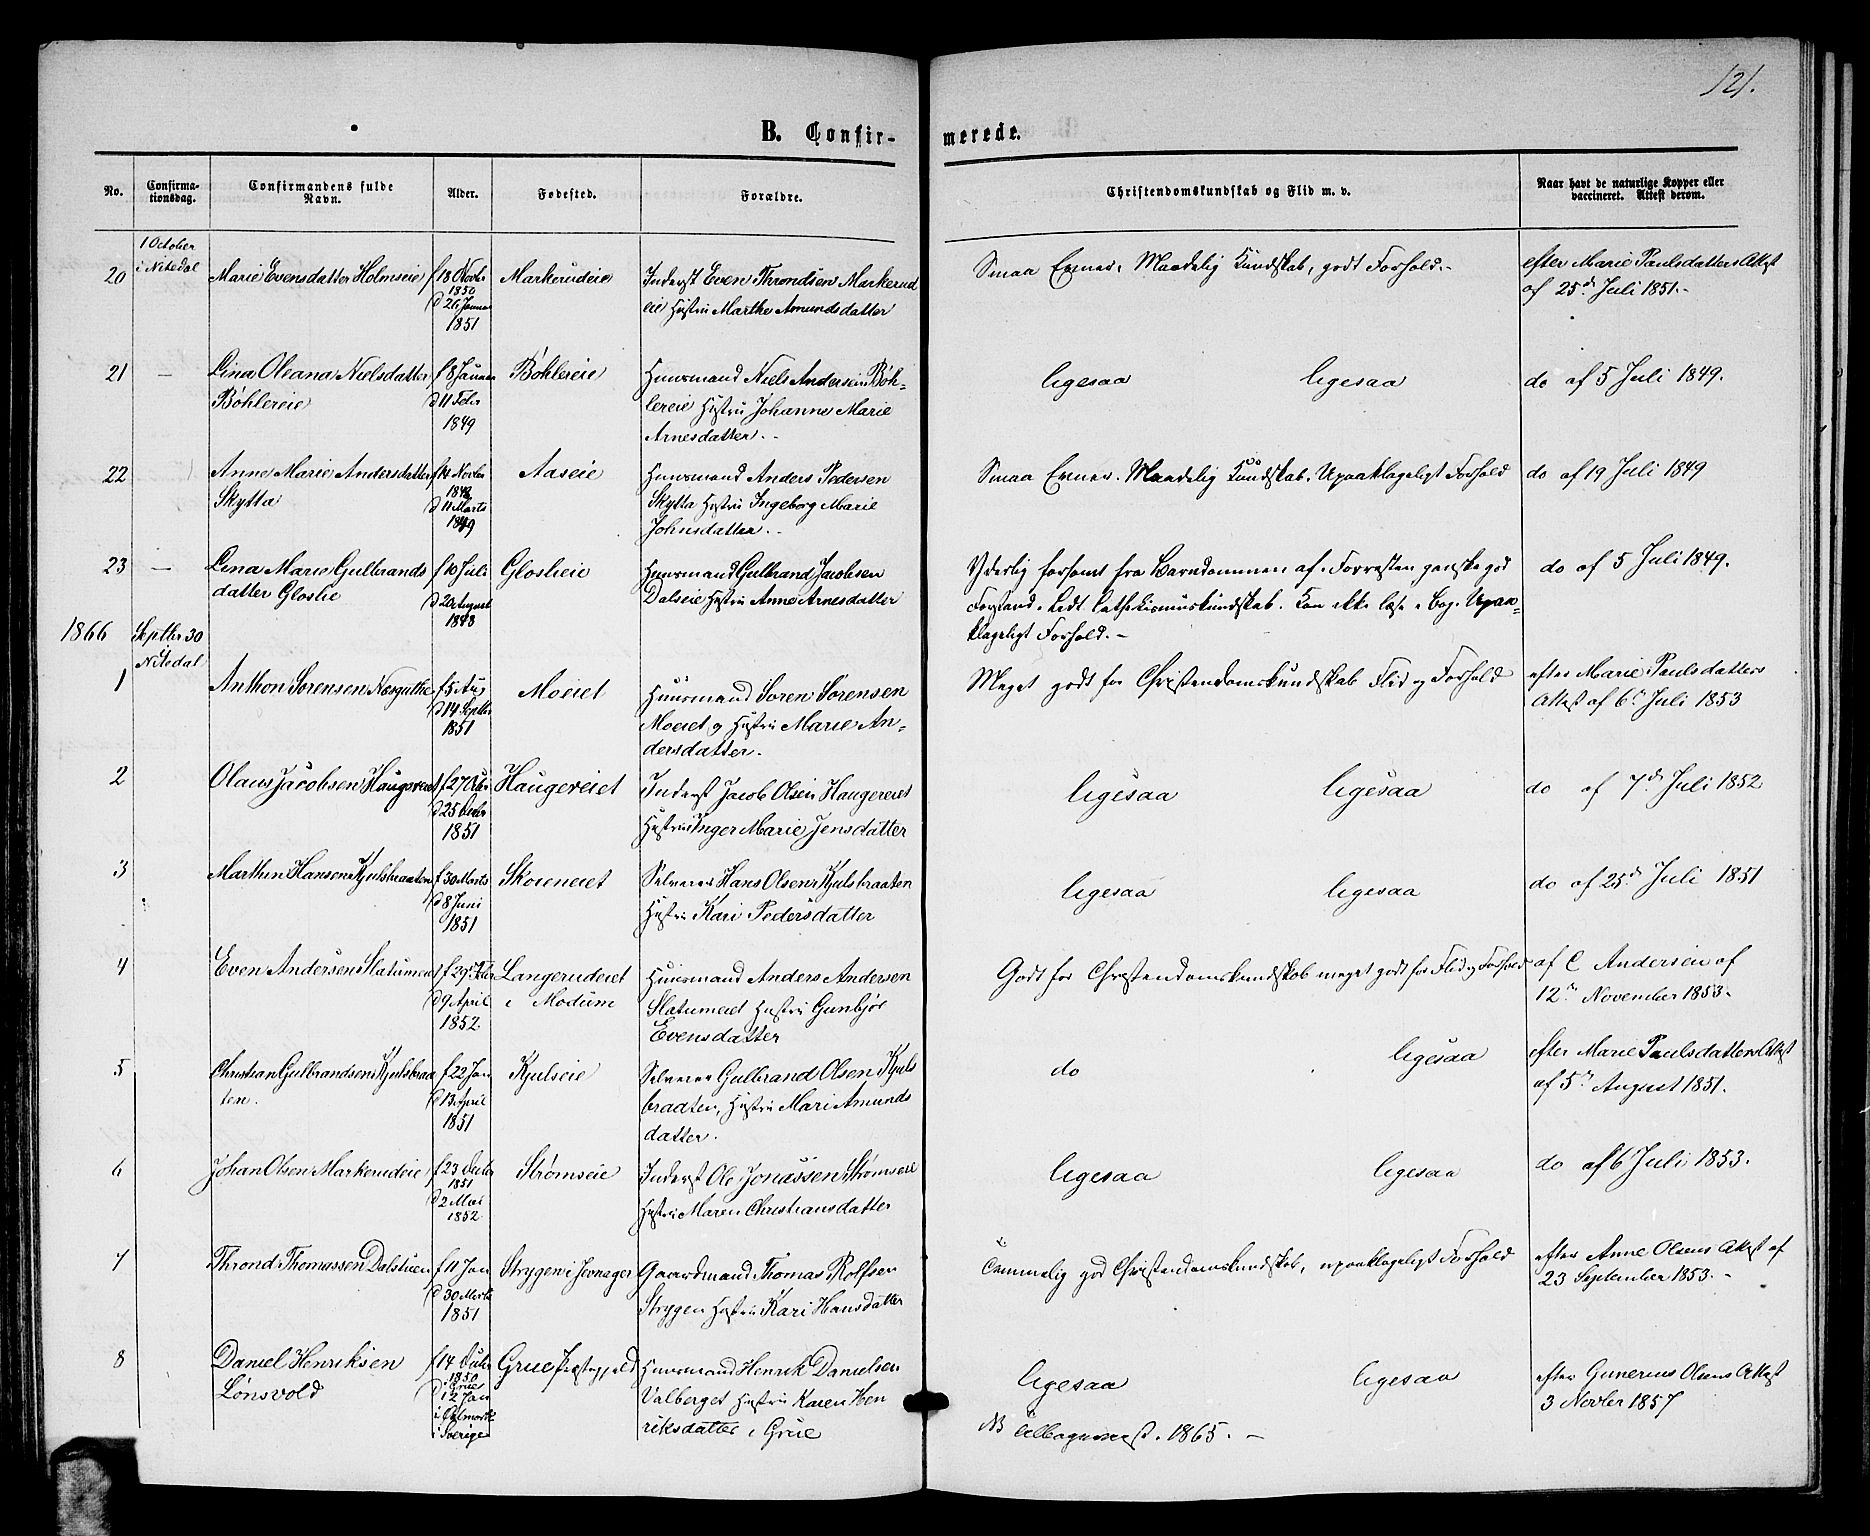 121.
B. Confir-
merede.
No.
Confirma-
tionsdag.
Confirmandens fulde
Navn.
Alder.
Fødested.
Forældre.
Christendomskundskab og Flid m. v.
Naar havt de naturlige Kopper eller
vaccineret. Attest derom.
1 October
i Nitedal
20
Marie Evensdatter Holmseie
f 18 Novbr
1850
d 26 Januar
1851
Markerudeie
Inderst Even Throndsen Markerud
eie Hustru Marthe Amundsdatter
Smaa Evner. Maadelig Kundskab, godt Forhold.-
efter Marie Paulsdatters Attest
af 25de Juli 1851.-
21
—
Lina Oleana Nielsdatter
Bøhlereie
f 8 Januar
d 11 Febr
1849
Bøhlereie
Huusmand Niels Andersen Bøh-
lereie Hustru Johanne Marie
Arnesdatter.-
ligesaa
ligesaa
do af 5 Juli 1849.
22
Anne Marie Andersdatter
Skytta
f 14 Novbr
1848
d 11 Marts
1849
Aaseie
Huusmand Anders Pedersen
Skytta Hustru Ingeborg Marie
Johnsdatter.-
Smaa Evner. Maadelig Kundskab. Upaaklageligt Forhold
do af 19 Juli 1849
23
—
Lina Marie Gulbrands
datter Gloslie
f 10 Juli
d 20 August
1848
Gloslieie
Huusmand Gulbrand Jacobsen
Dalseie Hustru Anne Arnesdatter
Yderlig forsømt fra Barndommen af. Forresten ganske god
Forstand. Lidt Cathekismuskundskab. Kan ikke læse i Bog. Upaa-
klageligt Forhold.-
do af 5 Juli 1849.
1866
Septbr 30
Nitedal
1
Anthon Sørensen
f 5 Aug
d 14 Septbr
1851
Moeiet
Huusmand Søren Sørensen
Moeiet og Hustru Marie An-
dersdatter.
Meget godt for Christendomskundskab Flid og Forhold
efter Marie Paulsdatters
Attest af 6te Juli 1853
2
Olaus Jacobsen Haugereiet
f 27 Octbr
d 25 Decbr
1851
Haugereiet
Inderst Jacob Olsen Haugereiet
Hustru Inger Marie Jensdatter
ligesaa
ligesaa
do af 7de Juli 1852
3
Marthin Hansen Kjulsbraaten
f 30 Marts
d 8 Juni
1851
Skoveneiet
Selveier Hans Olsen Kjulsbraaten
Hustru Kari Pedersdatter
ligesaa
ligesaa
do af 25de Juli 1851
4
Even Andersen Slatumeiet
f 29 Febr
d 9 April
1852
Langerudeiet
i Modum
Huusmand Anders Andersen
Slatumeiet Hustru Gunbjør
Evensdatter
Godt for Christendomskundskab meget godt for Flid og Forhold
af C Andersen af
12te November 1853.
5
Christian Gulbrandsen Kjulsbraa
ten.
f 22 Jan
d 13 April
1851
Kjulseie
Selveier Gulbrand Olsen Kjuls
braaten, Hustru Mari Amunds
datter.
do
ligesaa
efter Marie Paulsdatters Attest
af 5te August 1851.
6
Johan Olsen Markerudeie
f 23 Decbr
1851
d 2 Mai
1852
Strømseie
Inderst Ole Jonassen Strømseie
Hustru Maren Christiansdatter
ligesaa
ligesaa
do af 6 Juli 1853.
7
Thrond Thomassen Dalstuen
f 11 Jan
d 30 Marts
1851
Strygen i Jevnager
Gaardmand Thomas Rolfsen
Strygen Hustru Kari Hansdatter
Temmelig god Christendomskundskab, upaaklageligt Forhold
efter Anne Olsens Attest af
23 September 1853.-
8
Daniel Henriksen
Lønsvold
f 14 Decbr
1850
i Grue
d 2 Jan
i Sverige
Grue Præstegjeld
Huusmand Henrik Danielsen
Valberget Hustru Karen Hen
riksdatter i Grue
ligesaa
ligesaa
efter Gunerius Olsens Attest
3 Novbr 1857
NB 1865.-